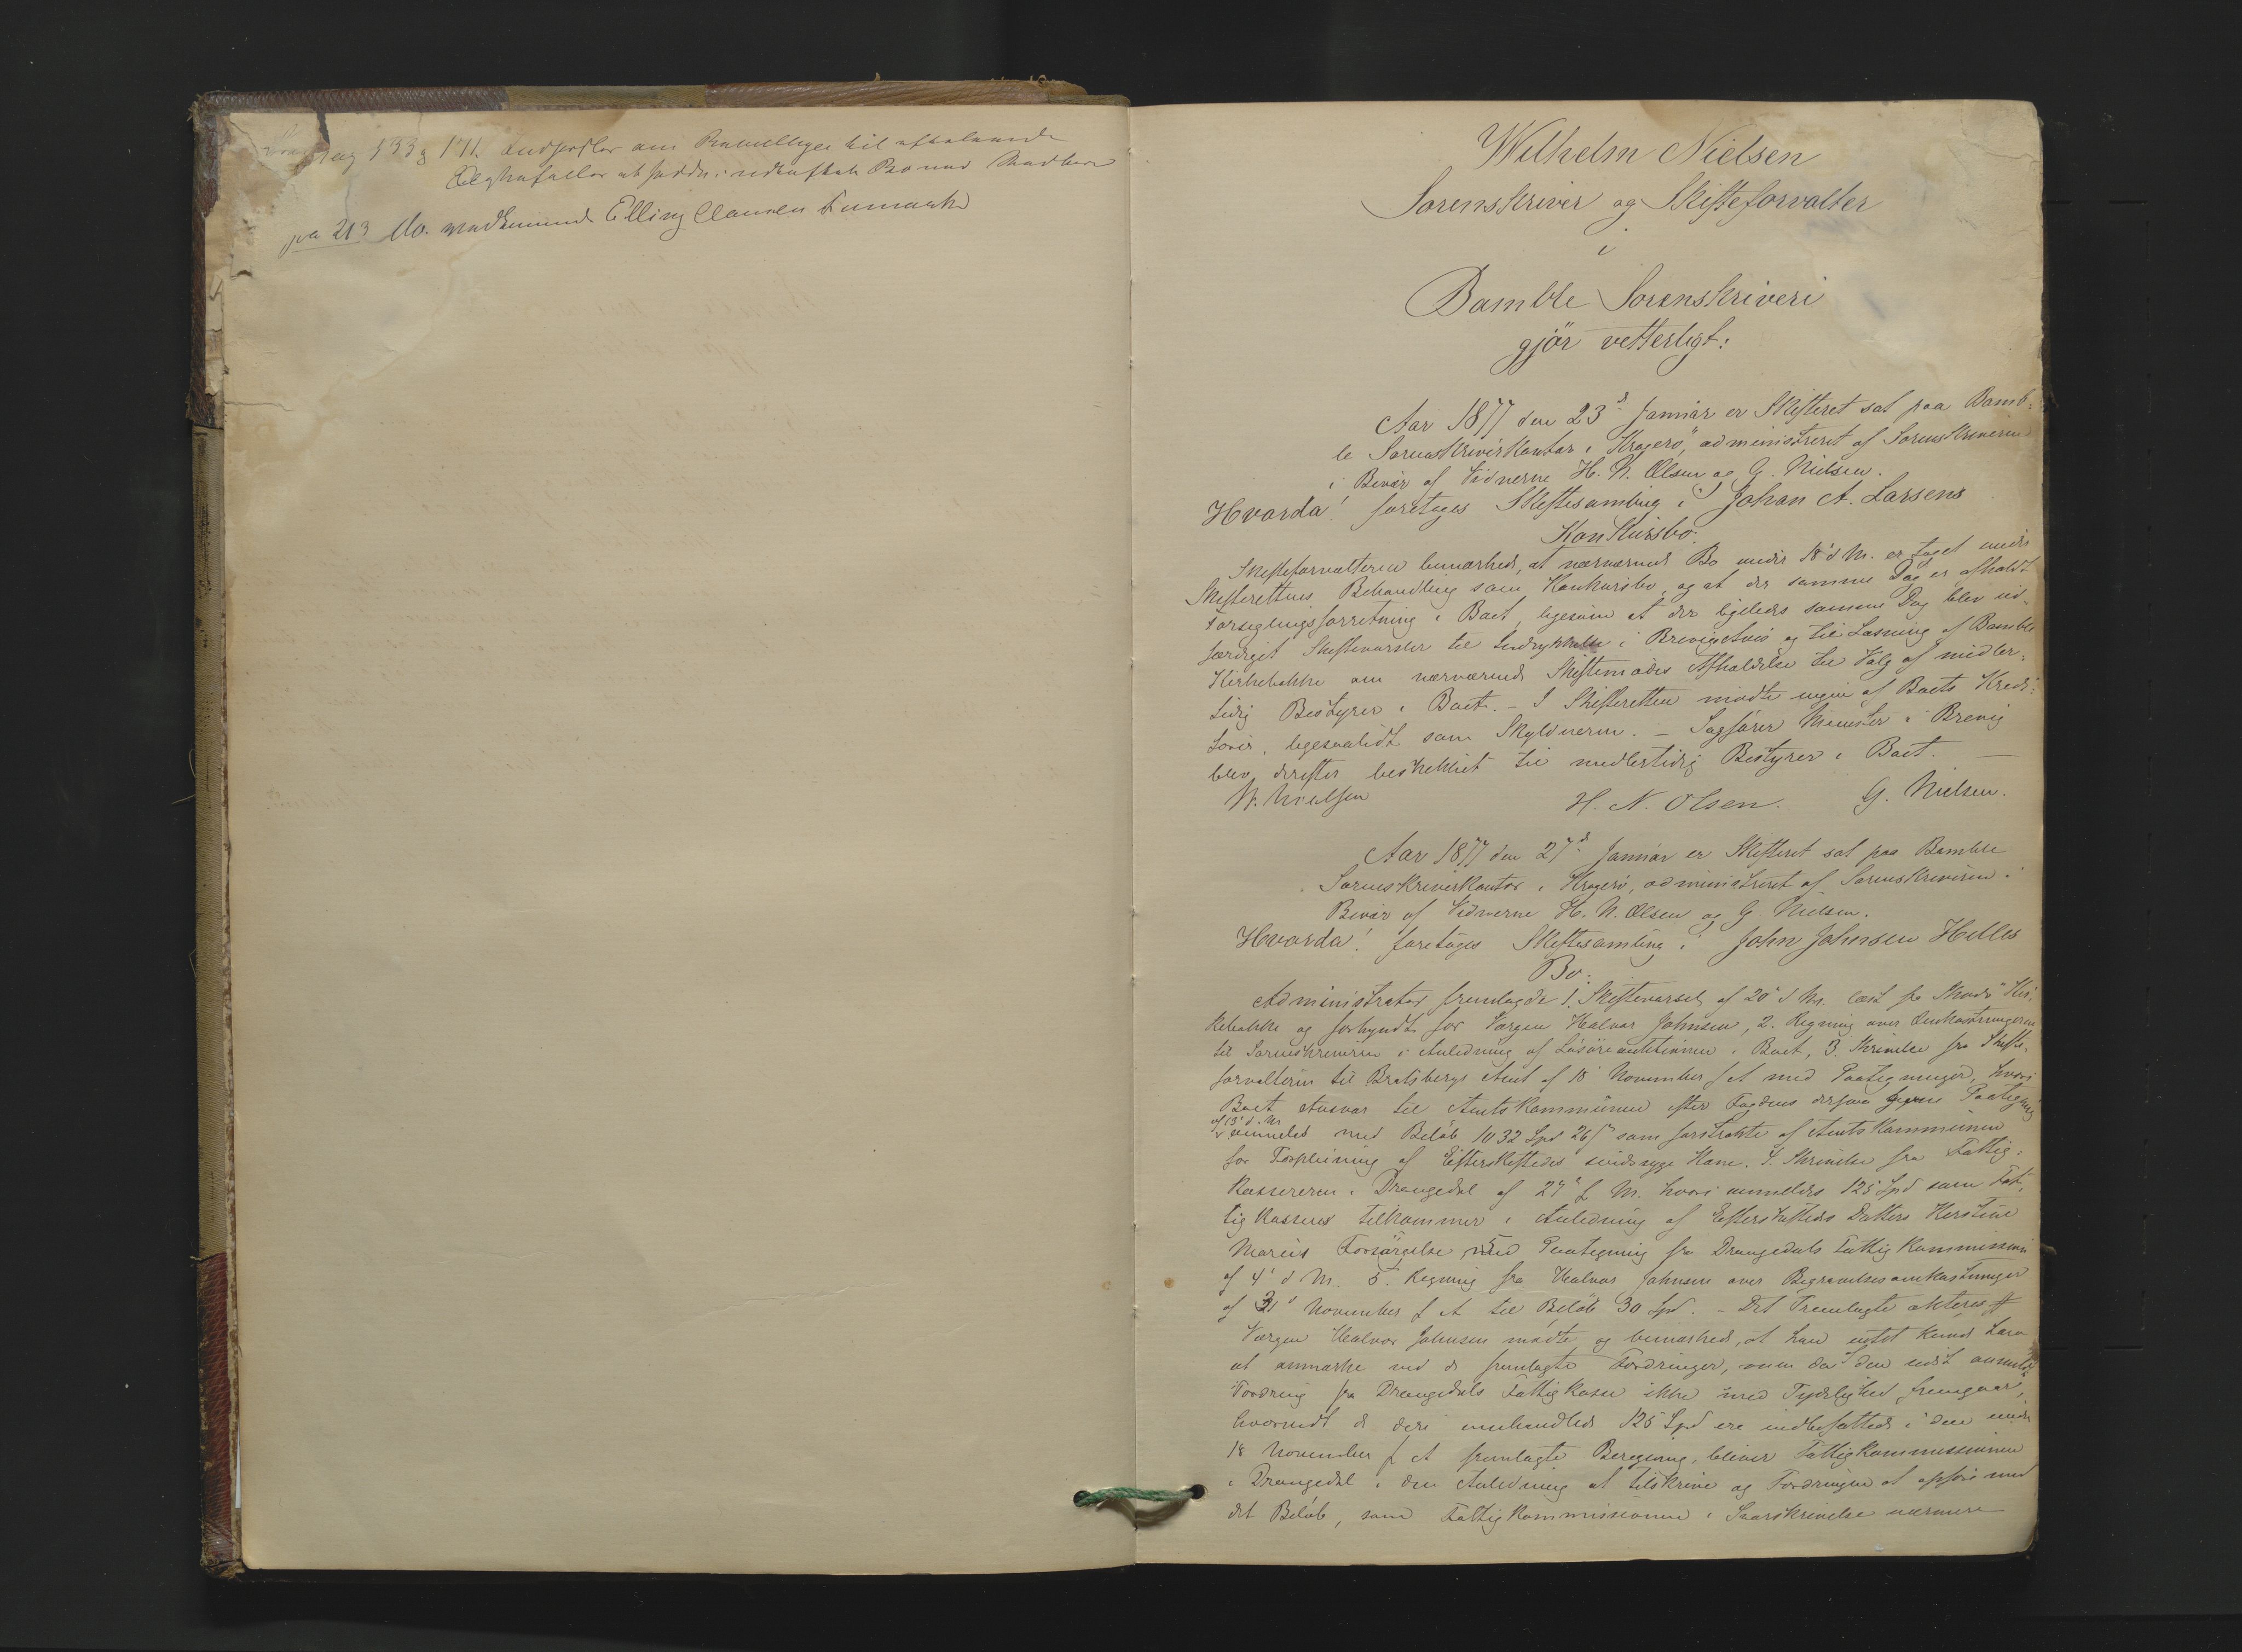 pag 133 & 171. om Bevillinger til afholdende
at sidde i uskiftet Bo med
pa 213 do. vedkommende Elling Clausen
Wilhelm Nielsen
Sorenskriver og Skifteforvalter
i
Bamble Sorenskriveri
gjör vetterligt:
Aar 1877 den 23d Januar er Skifteret sat paa Bamb-
le Sorenskriverkontor i Kragerö, administreret af Sorenskriveren
i Bivær af Vidnerne H. N. Olsen og G. Nielsen.
Hvorda! foretages Skiftesamling i Johan A. Larsens
Konkursbo.
Skifteforvalteren bemærkede, at nærværende Bo under 18 d. M. er taget under
Skifterettens Behandling som Konkursbo, og at der samme Dag er afholdt
Forseglingsforretning i Boet, ligesom at der ligeledes samme Dag blev ud-
færdiget Skiftevarsler til Indrykkelse i Brevigs Avis og til Læsning af Bamble
Kirkebakke om nærværende Skiftemödes Afholdelse til Valg af midler-
tidig Bestyrer i Boet. - I Skifteretten mödte ingen af Boets Kredi-
torer, ligesaalidt som Skyldneren. - Sagförer Münster i Brevig
blev derefter beskikket til midlertidig Bestyrer i Boet. -
W. Nielsen H. N. Olsen. G. Nielsen.
Aar 1877 den 27d Januar er Skifteret sat paa Bamble
Sorenskriverkontor i Kragerö, administreret af Sorenskriveren i
Bivær af Vidnerne H. N. Olsen og G. Nielsen.
Hvorda! foretages Skiftesamling i John Johnsen Helles
Bo.
Administrator fremlagde 1. Skiftevarsel af 20 d. M. læst fra Skaadö Kir-
kebakke og forkyndt for Værgen Halvor Johnsen, 2. Regning over Omkostningerne
til Sorenskriveren i Anledning af Lösöreauktionen i Boet, 3. Skrivelse fra Skifte-
forvalteren til Bratsbergs Amt af 18 November f. A. med Paategninger, hvori
Boet Ansvar til Amtskommünen efter Fogdens derpaa givne Paategning
af 13 d. M.
anmeldes med Beløb 1032 Spd 26 s som forstrakte af Amtskommünen
for Forpleining af Efterskiftedes sindssyge Kone. 4. Skrivelse fra Fattig-
kassereren i Drangedal af 24 f. M. hvori anmeldes 125 Spd som Fat-
tigkassen tilkommer i Anledning af Efterskiftedes Datters Kerstine
Maries Forsörgelse med Paategning fra Drangedals Fattigkommission
af 4 d. M. 5. Regning fra Halvor Johnsen over Begravelsesomkostninger
af 31 November f. A. til Beløb 30 Spd. - Det Fremlagte akteres
Værgen Halvor Johnsen mödte og bemærkede, at han intet kunde have
at anmærke ved de fremlagte Fordringer, men da den sidst anmeldte
Fordring fra Drangedals Fattigkasse ikke med Tydelighed fremgaar,
hvorvidt de deri omhandlede 125 Spd ere indbefattede i den under
18 November f. A. fremlagte Beregning, bliver Fattigkommissionen
i Drangedal i den Anledning at tilskrive og Fordringen at opføre med
det Beløb, som Fattigkommissionen i Svarskrivelse nærmere